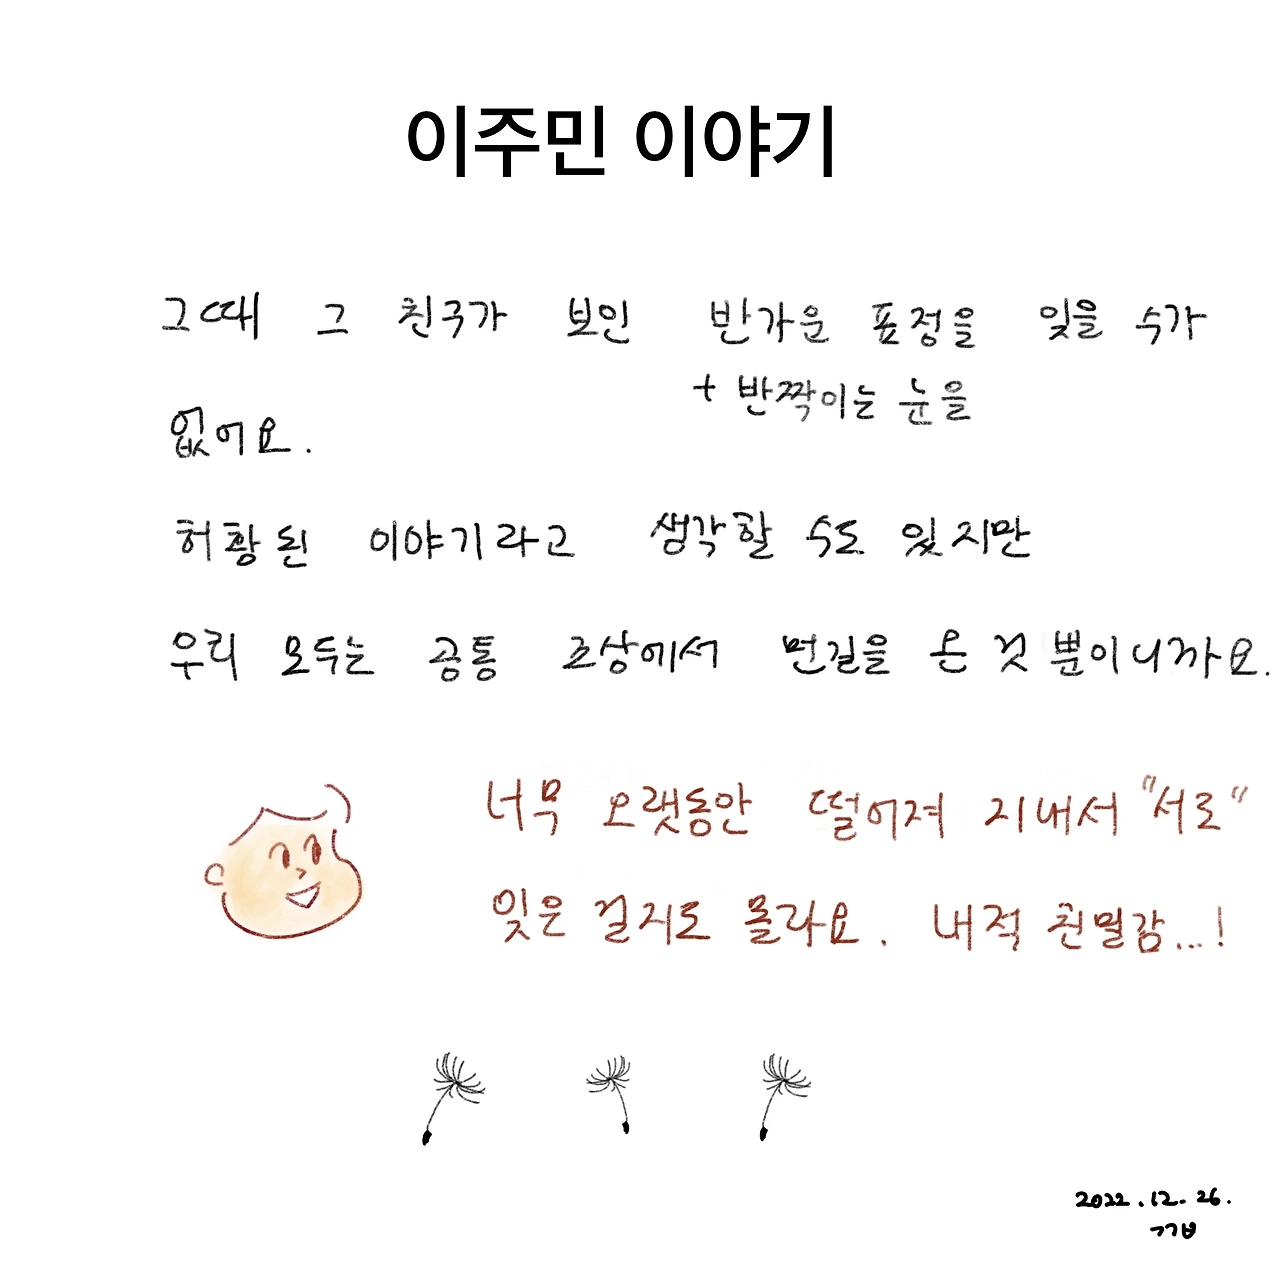 이주민 이야기
그때 그 친구가 보인 반가운 표정을 잊을 수가
+ 반짝이는 눈을
없어요.
허황된 이야기라고 생각할 수도 있지만
우리 모두는 공통 조상에서 먼길을 온 것 뿐이니까요.
너무 오랫동안 떨어져 지내서 "서로"
잊은 걸지도 몰라요. 내적 친밀감...!
2022.12.26.
ㄱㄱㅂ